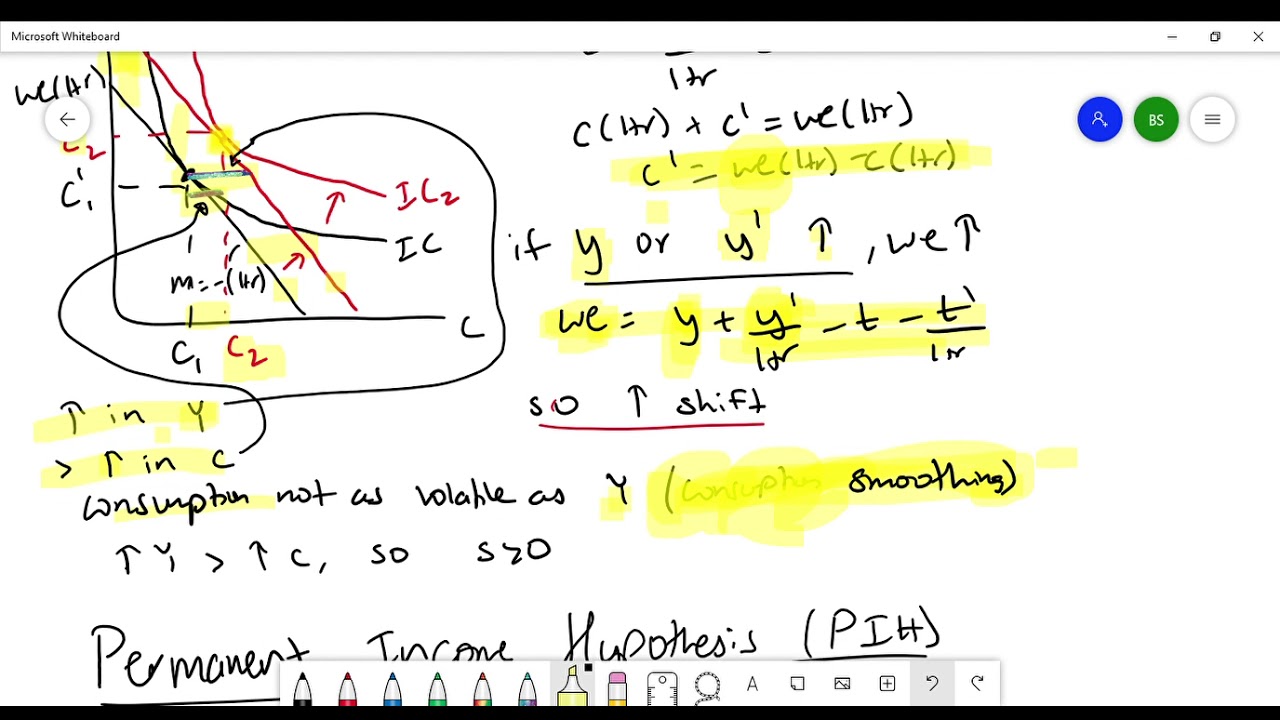 Microsoft Whiteboard
we(1+r)
1+r
c(1+r) + c' = we(1+r)
BS
c' = we(1+r) - c(1+r)
C2
C'1
IC2
IC
if y or y' ↑, we ↑
m = -(1+r)
we = y + y'/1+r - t - t'/1+r
C
C1 C2
so ↑ shift
↑ in Y
> ↑ in C
consumption not as volatile as Y (consumption smoothing)
↑ Y > ↑ C, so S>0
Permanent Income Hypothesis (PIH)
A